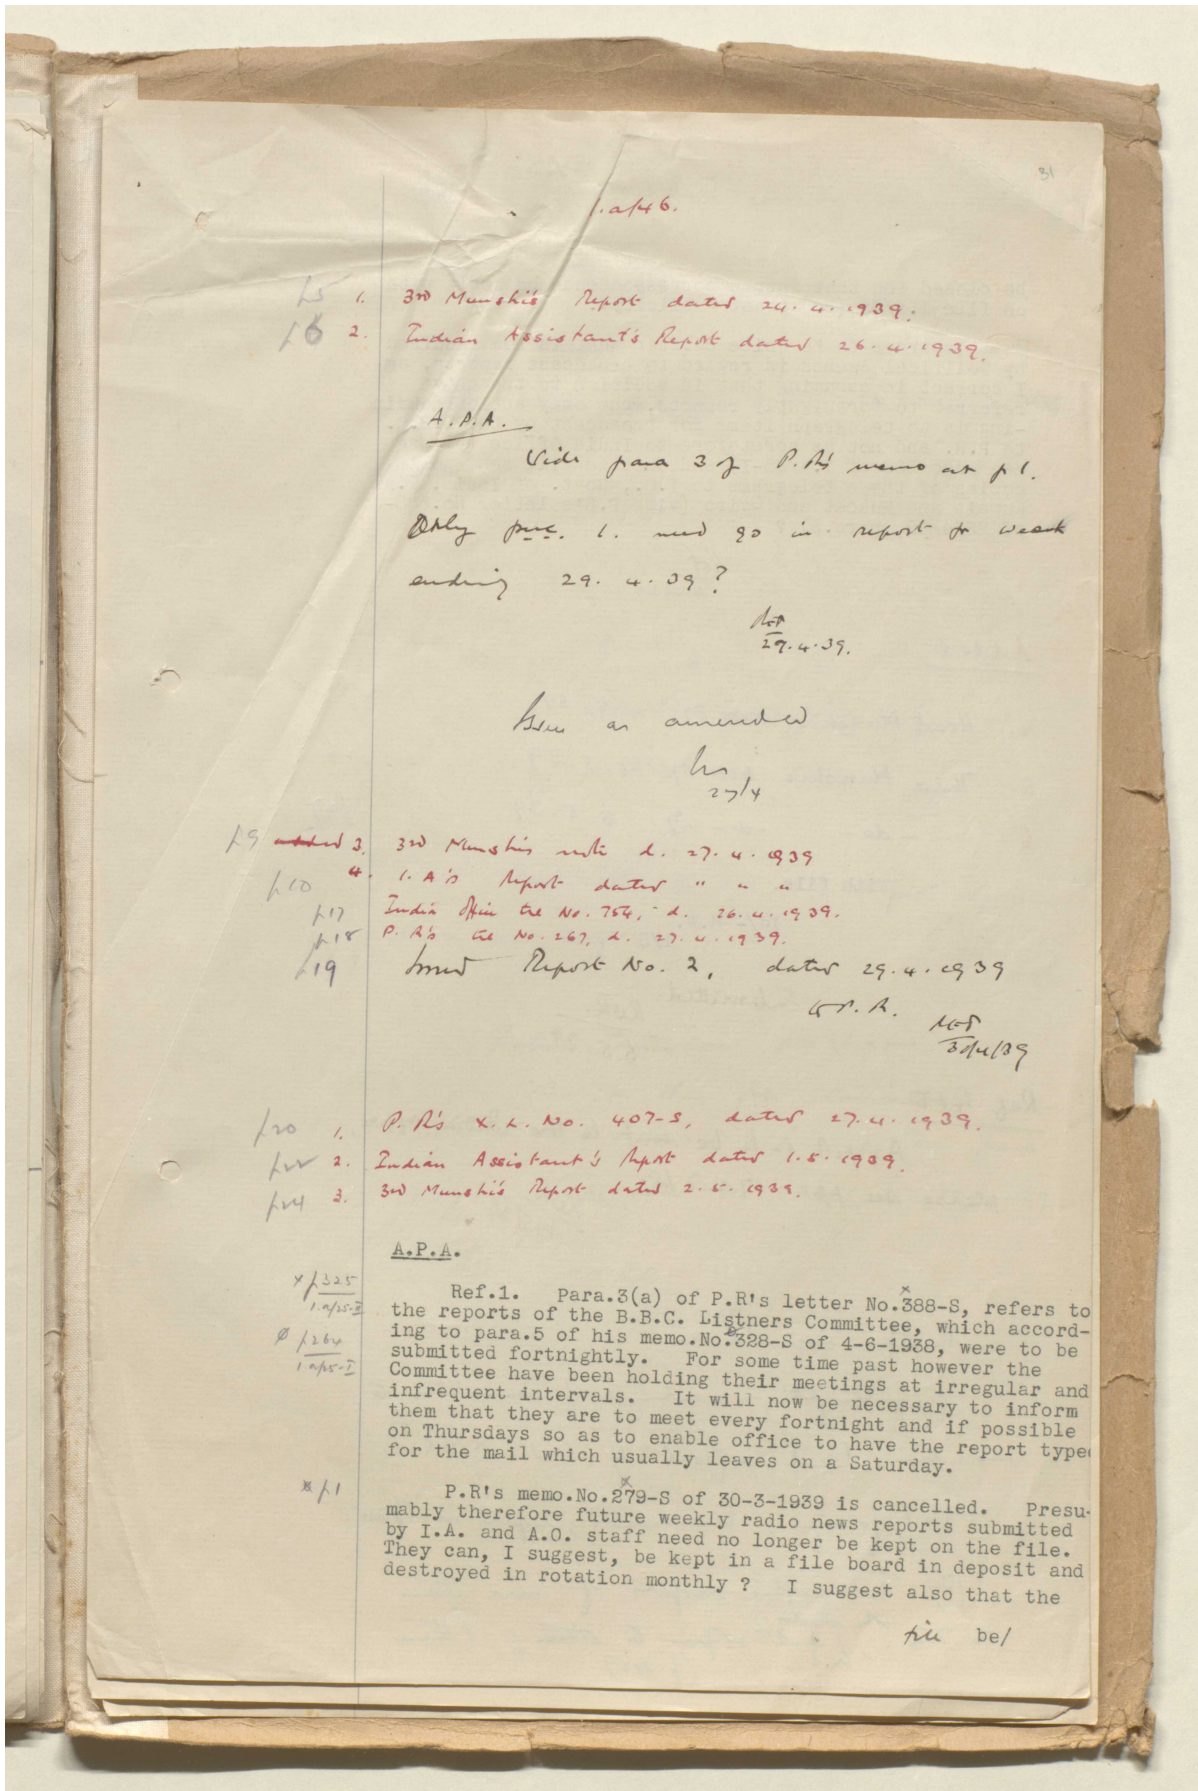 31
1.a/46.
p5 1. 3rd Munshi's Report dated 24.4.1939.
p6 2. Indian Assistant's Report dated 26.4.1939.
A.P.A.
Vide para 3 of P.R's memo at p 1.
Only p.uc. 1. need go in report for week
ending 29.4.39?
29.4.39.
Issue as amended
27/4
p9 3. 3rd Munshi's note d. 27.4.1939
p10 4. I.A's Report dated " " "
p17 India Office tel No. 754, d. 26.4.1939.
p18 P.R's tel No. 267, d. 27.4.1939.
p19 Issued Report No. 2, dated 29.4.1939
to P.R.
30/4/39
p20 1. P.R's X.L. No. 407-S, dated 27.4.1939.
p22 2. Indian Assistant's Report dated 1.5.1939.
p24 3. 3rd Munshi's Report dated 2.5.1939.
A.P.A.
x p325
1.a/25-II
Ref.1. Para.3(a) of P.R's letter No.388-S, refers to
the reports of the B.B.C. Listners Committee, which accord-
ø p264
1 a/25-I
ing to para.5 of his memo.No.328-S of 4-6-1938, were to be
submitted fortnightly. For some time past however the
Committee have been holding their meetings at irregular and
infrequent intervals. It will now be necessary to inform
them that they are to meet every fortnight and if possible
on Thursdays so as to enable office to have the report type
for the mail which usually leaves on a Saturday.
x p1
P.R's memo.No.279-S of 30-3-1939 is cancelled. Presu-
mably therefore future weekly radio news reports submitted
by I.A. and A.O. staff need no longer be kept on the file.
They can, I suggest, be kept in a file board in deposit and
destroyed in rotation monthly ? I suggest also that the
file be/